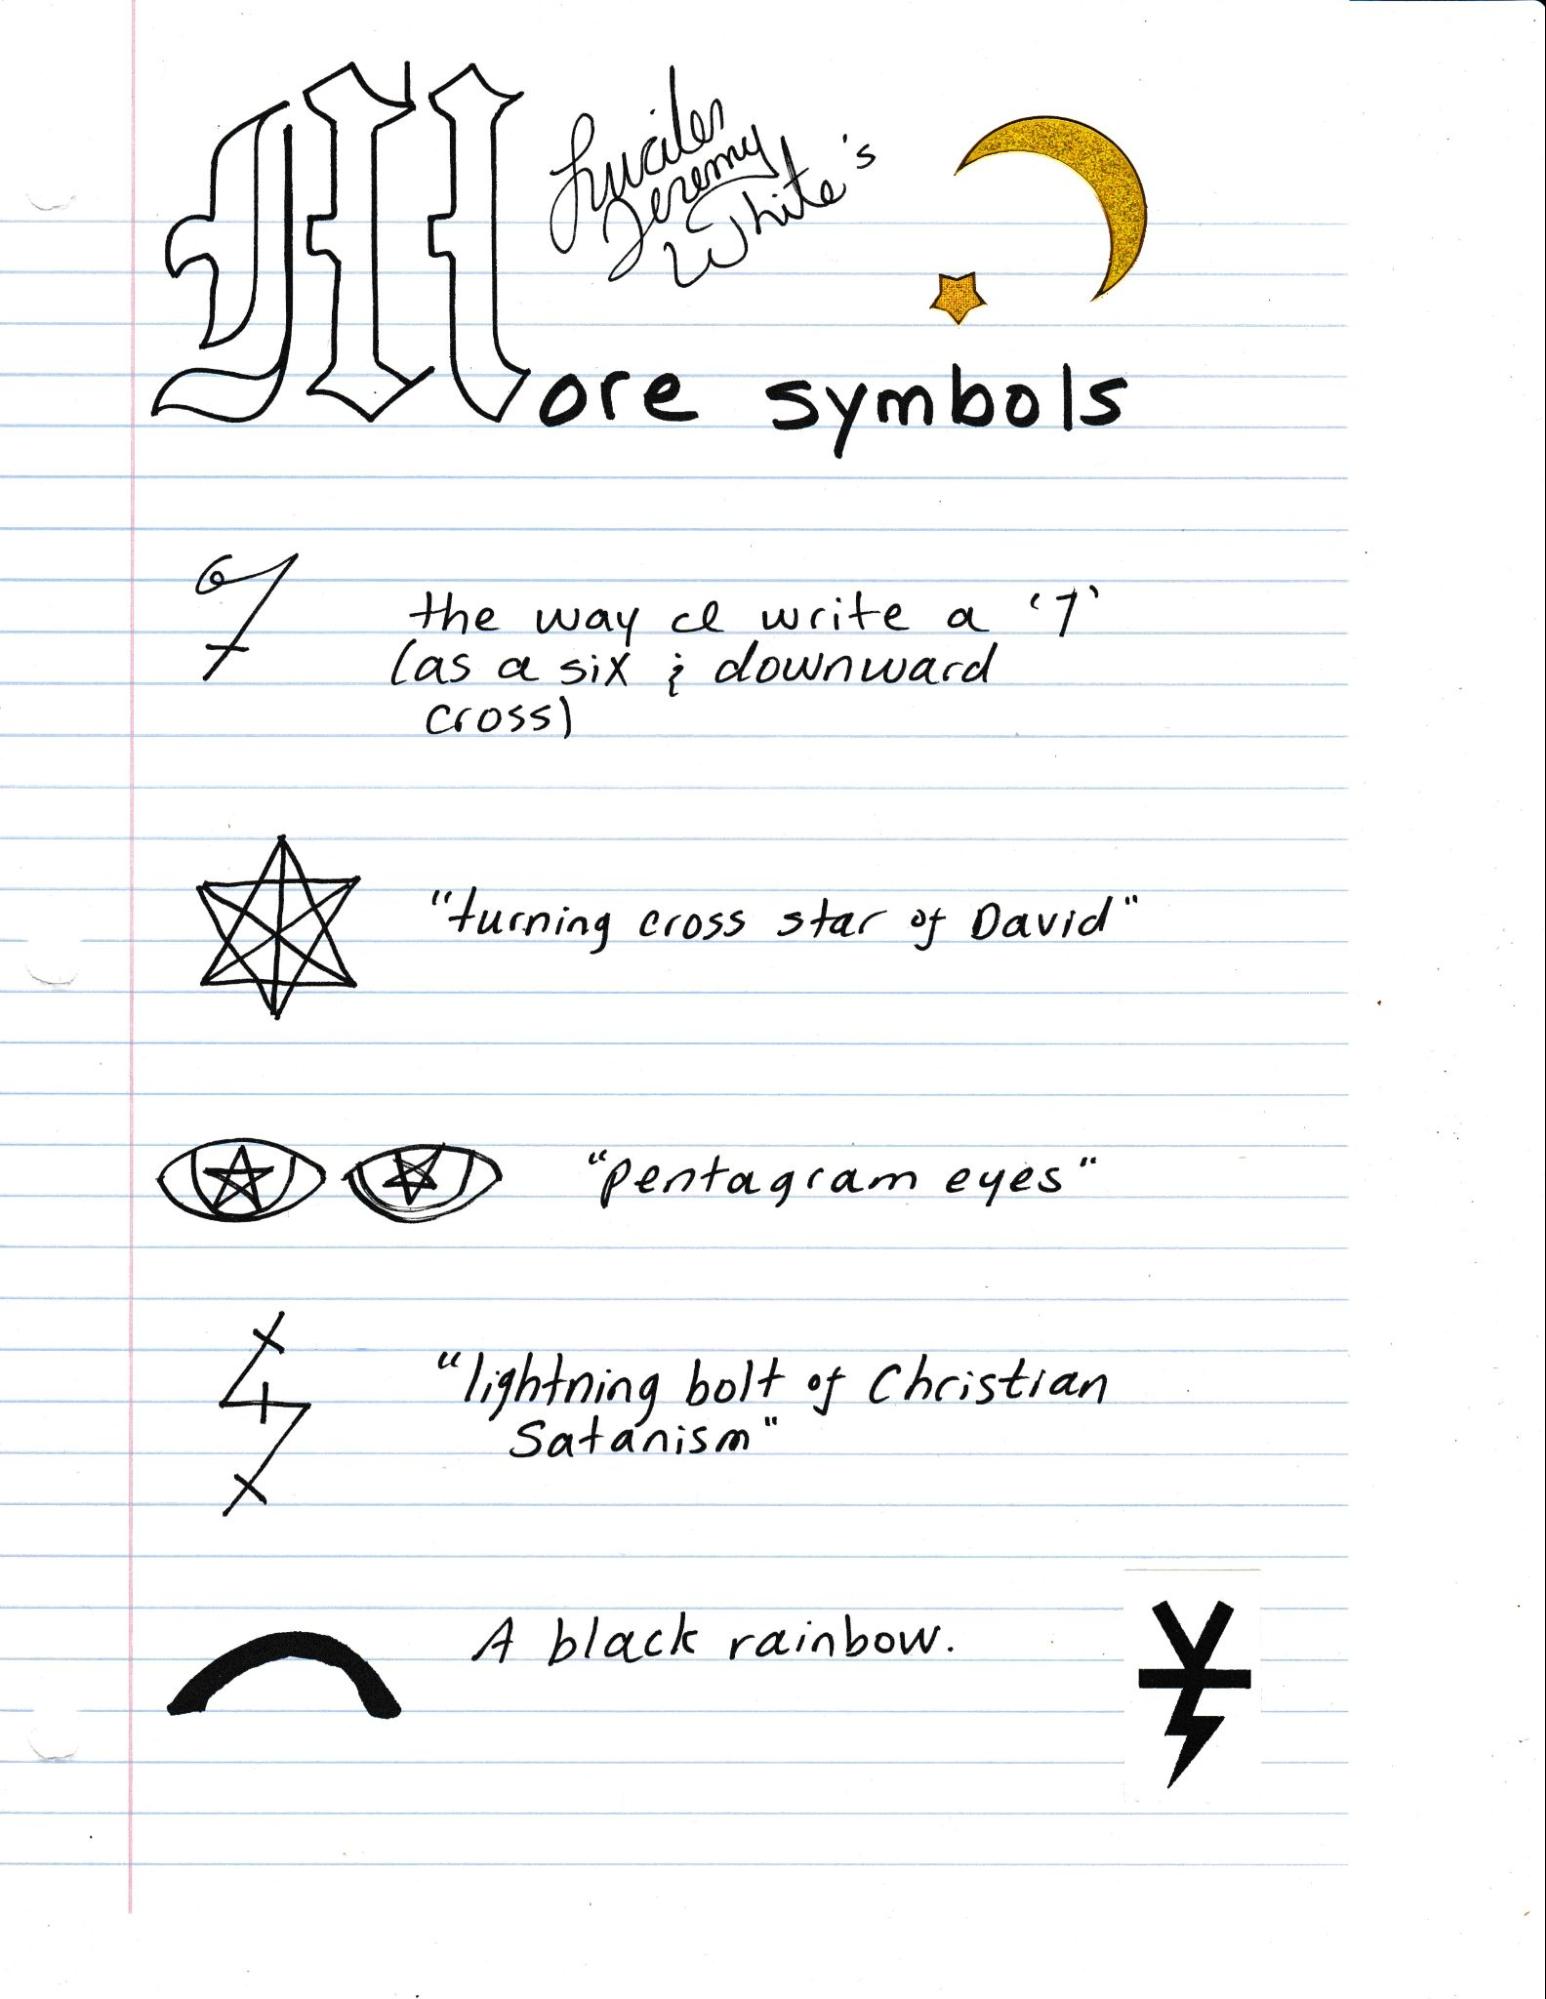 Lucifer
Jeremy
White's
More symbols
the way I write a '7'
(as a six & downward
cross)
"turning cross star of David"
"pentagram eyes"
"lightning bolt of Christian
Satanism"
A black rainbow.